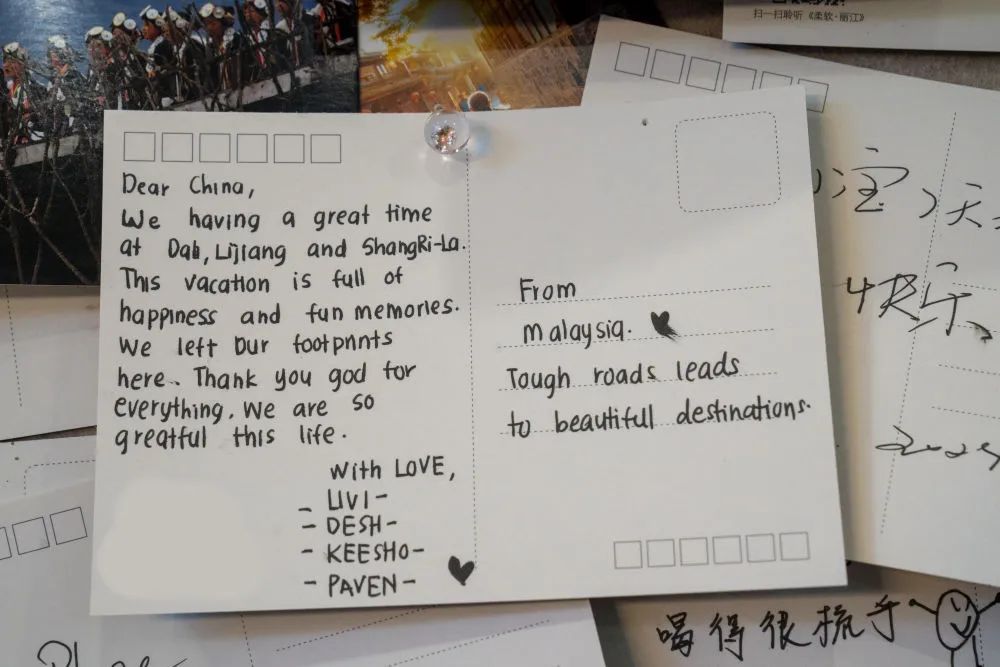 扫一扫聆听《柔软·丽江》
Dear China,
We having a great time
at Dali, Lijiang and ShangRi-La.
This vacation is full of
happiness and fun memories.
We left our footprints
here. Thank you god for
everything. We are so
greatful this life.
With LOVE,
- LIVI -
- DESH -
- KEESHO -
- PAVEN -
From
malaysia.
Tough roads leads
to beautiful destinations.
天
快乐
喝得很梳乎